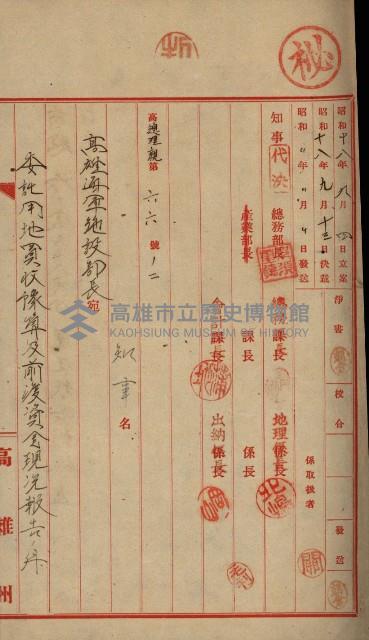 秘
昭和十八年九月四日立案
昭和十八年九月十三日決裁
昭和 年 月 日發送
淨書
校合
發送
知事 代決
總務部長
產業部長
總務課長
地理係長
係取扱者
會計課長
係長
出納係長
高總理親第六六號ノ二
知事名
高雄海軍施設部長宛
委託用地買收豫算及前渡資金現況報告ノ件
高雄州
高雄市立歷史博物館
KAOHSIUNG MUSEUM OF HISTORY